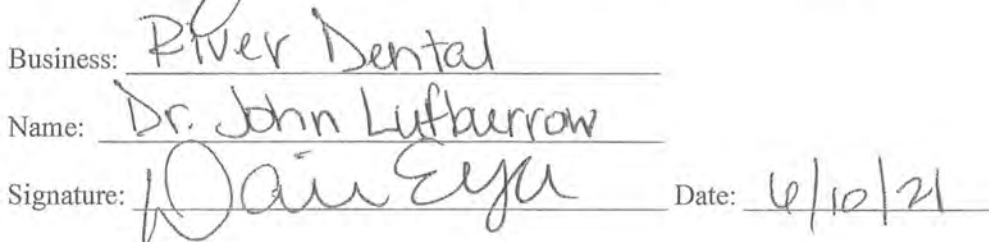 Business: River Dental
Name: Dr. John Lufburrow
Signature: Date: 6/10/21